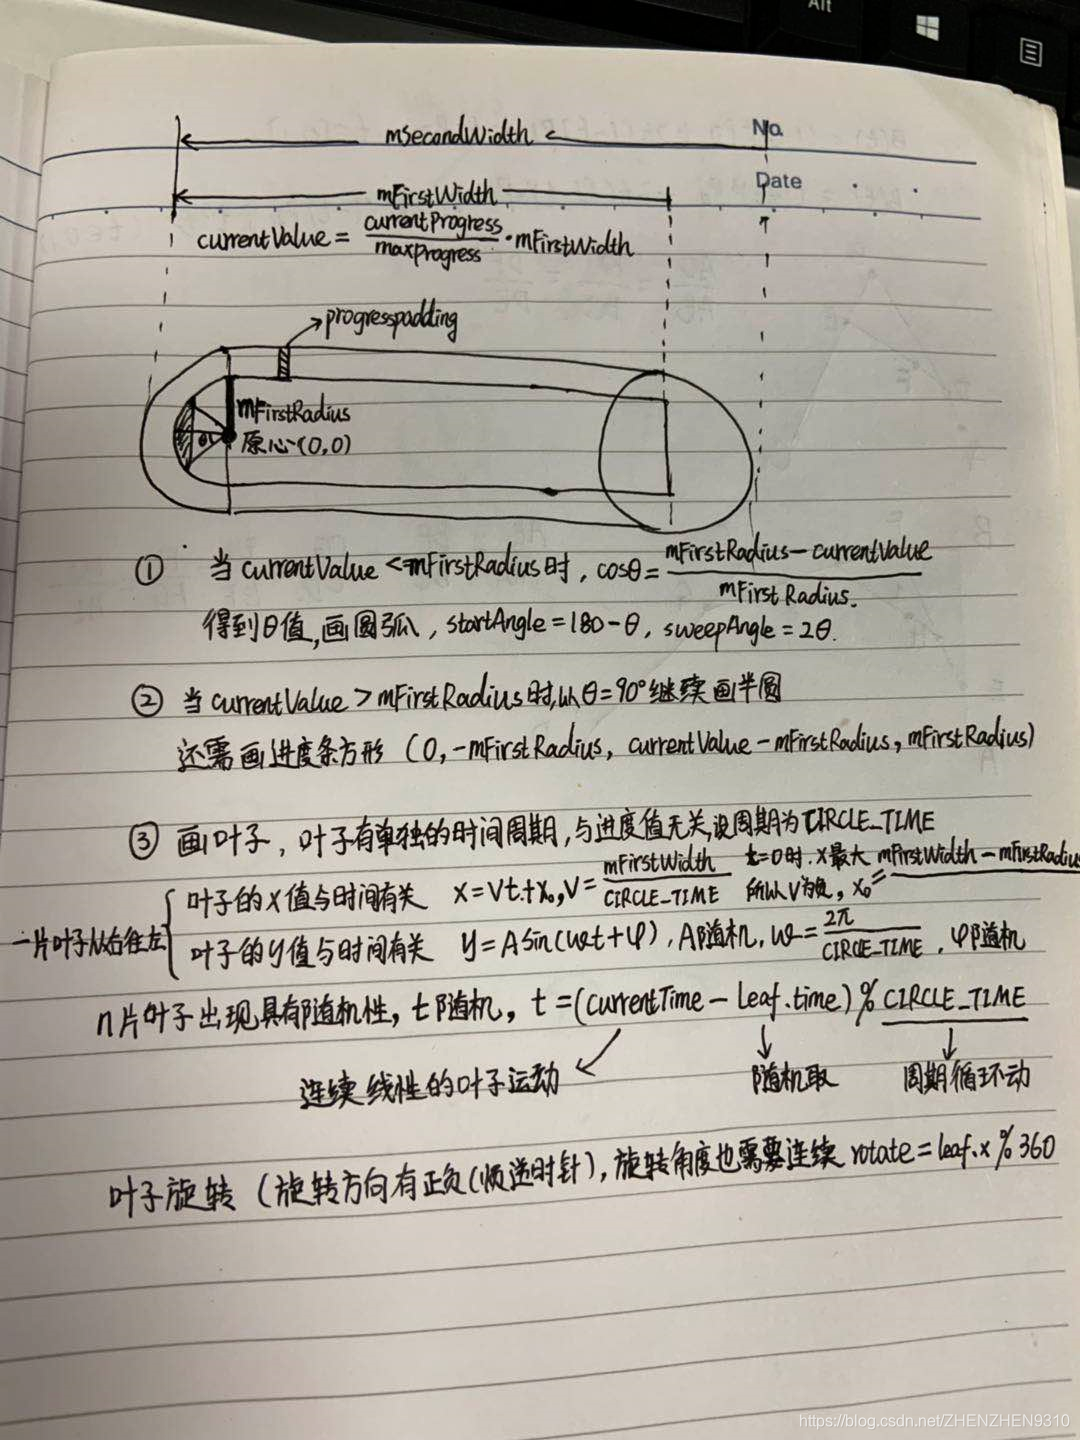 Alt
No.
mSecondWidth
Date
mFirstWidth
currentValue = currentProgress / maxprogress · mFirstWidth
progresspadding
mFirstRadius
θ
原心(0,0)
① 当currentValue <= mFirstRadius时, cosθ = mFirstRadius - currentValue / mFirstRadius.
得到θ值,画圆弧, startAngle = 180-θ, sweepAngle = 2θ.
② 当currentValue > mFirstRadius时,从θ=90°继续画半圆
还需画进度条方形 (0, -mFirstRadius, currentValue - mFirstRadius, mFirstRadius)
③ 画叶子, 叶子有单独的时间周期, 与进度值无关,设周期为CIRCLE_TIME
叶子的x值与时间有关 x = Vt + x₀, V = mFirstWidth / CIRCLE_TIME t=0时. x最大 所以V为负, x₀ = mFirstWidth - mFirstRadius
一片叶子从右往左
叶子的y值与时间有关 y = Asin(wt+φ), A随机, w = 2π / CIRCLE_TIME, φ随机
n片叶子出现具有随机性, t随机, t = (currentTime - leaf.time) % CIRCLE_TIME
连续线性的叶子运动 随机取 周期循环动
叶子旋转 (旋转方向有正负(顺逆时针), 旋转角度也需要连续 rotate = leaf.x % 360
https://blog.csdn.net/ZHENZHEN9310